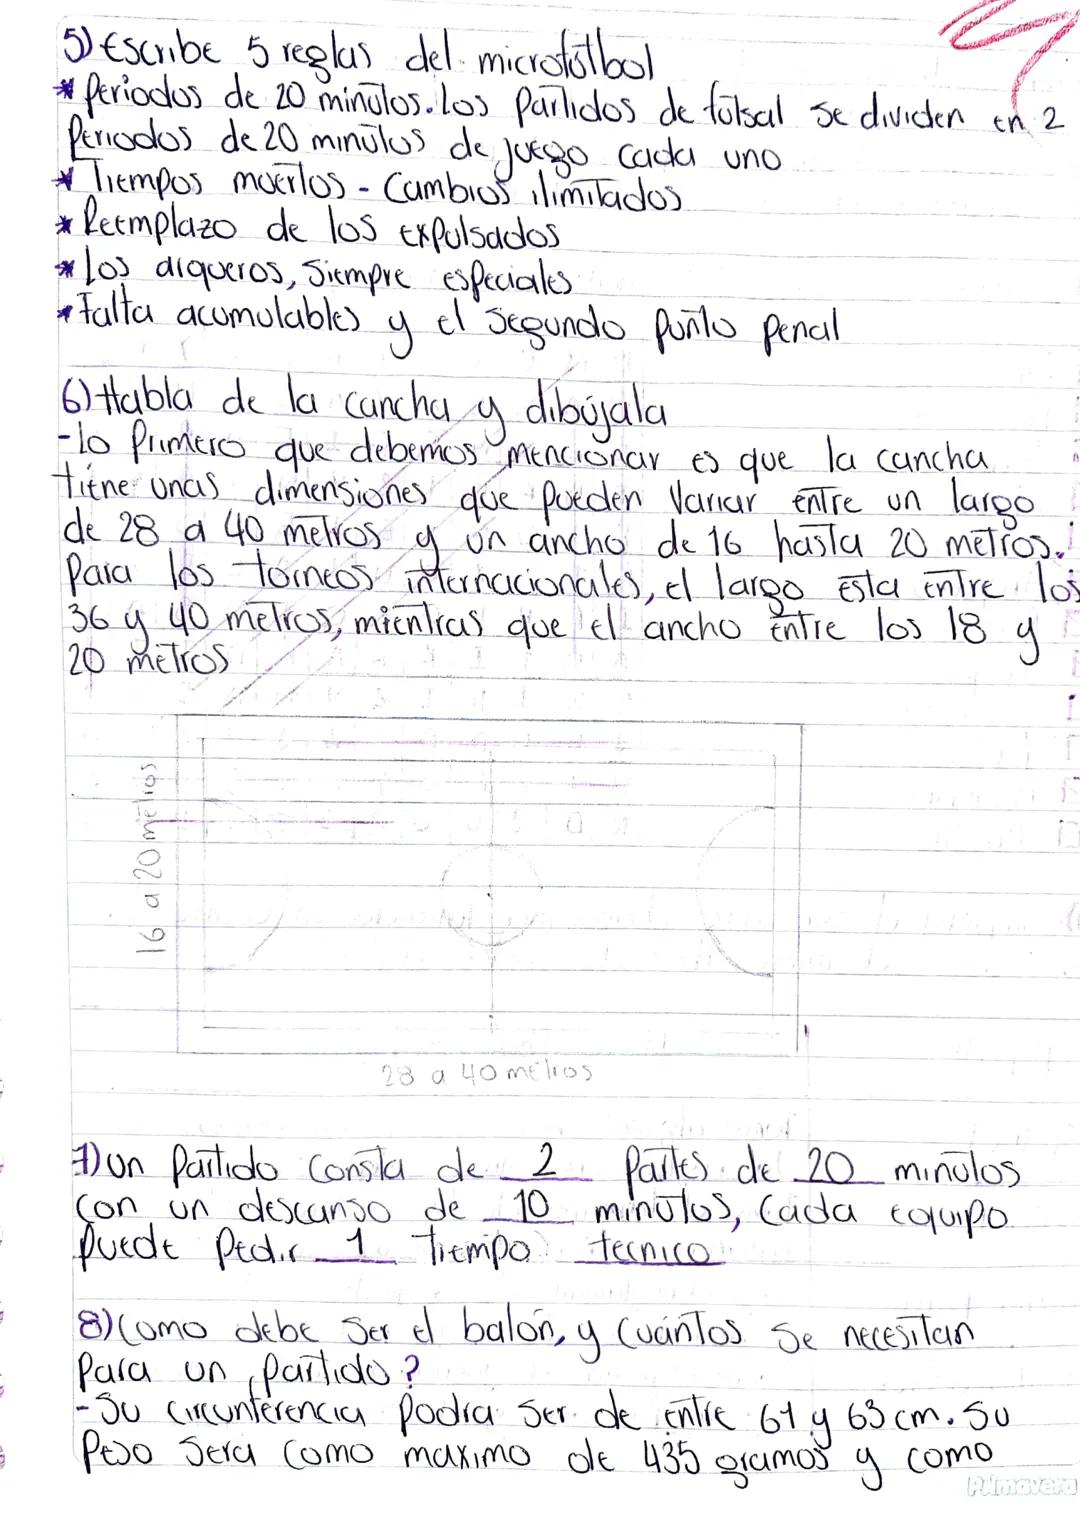 5) Escribe 5 reglas del microfútbol
* Periodos de 20 minutos. Los Partidos de futsal se dividen en 2
Periodos de 20 minutos de juego cada uno
* Tiempos muertos - Cambios ilimitados
* Reemplazo de los expulsados
* Los arqueros, Siempre especiales
* Falta acumulables y el segundo punto penal
6) Habla de la cancha y dibújala
- Lo Primero que debemos mencionar es que la cancha
tiene unas dimensiones que pueden Variar entre un largo
de 28 a 40 metros y un ancho de 16 hasta 20 metros.
Para los torneos internacionales, el largo esta entre los
36 y 40 metros, mientras que el ancho entre los 18 y
20 metros
16 a 20 metros
28 a 40 metros
7) Un Partido Consta de 2 Partes de 20 minutos
con un descanso de 10 minutos, Cada equipo
Puede Pedir 1 Tiempo tecnico
8) Como debe Ser el balón, y Cuántos Se necesitan
Para un Partido?
- Su Circunferencia Podra Ser de entre 61 y 63 cm. Su
Peso Sera Como maximo de 435 gramos y como
Primavera